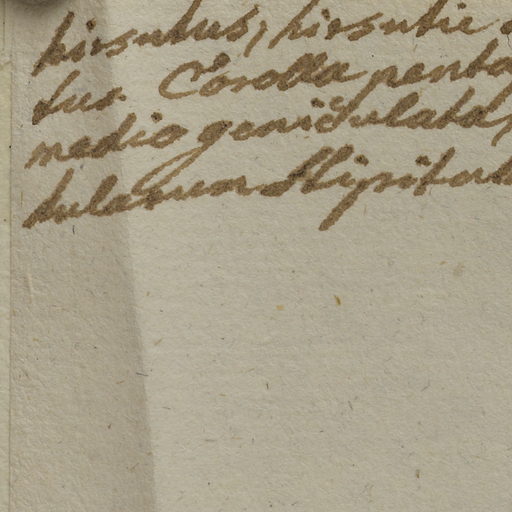 hirsutus, hirsutie
tus. Corolla penta
medio geniculata,
tularum Stipitat